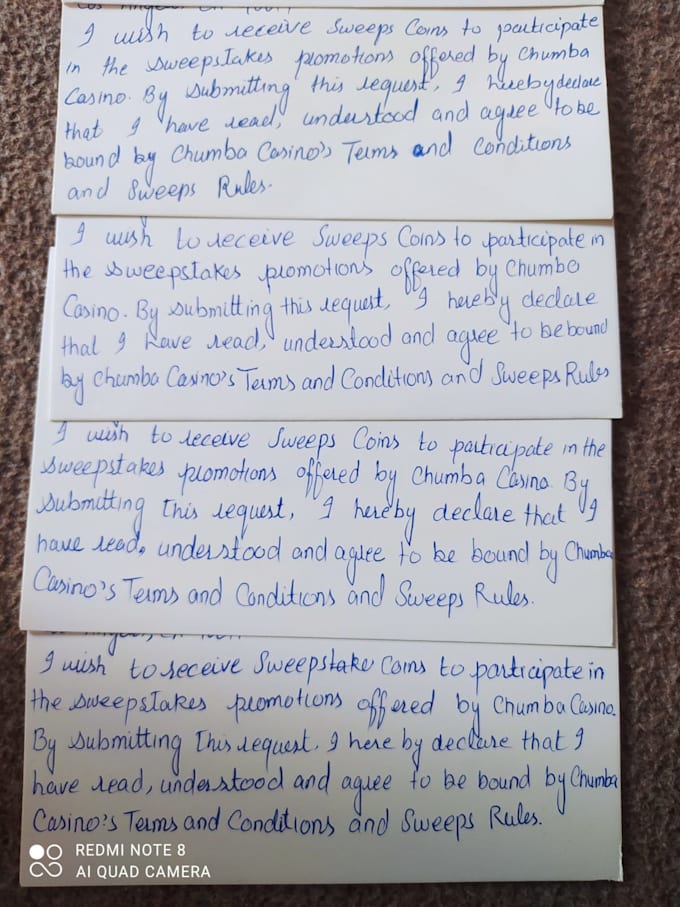 I wish to receive Sweeps Coins to participate
in the sweepstakes promotions offered by Chumba
Casino. By submitting this request, I hereby declare
that I have read, understood and agree to be
bound by Chumba Casino's Terms and Conditions
and Sweeps Rules.
I wish to receive Sweeps Coins to participate in
the sweepstakes promotions offered by Chumba
Casino. By submitting this request, I hereby declare
that I have read, understood and agree to be bound
by Chumba Casino's Terms and Conditions and Sweeps Rules
I wish to receive Sweeps Coins to participate in the
sweepstakes promotions offered by Chumba Casino. By
submitting this request, I hereby declare that I
have read, understood and agree to be bound by Chumba
Casino's Terms and Conditions and Sweeps Rules.
I wish to receive Sweepstake Coins to participate in
the sweepstakes promotions offered by Chumba Casino.
By submitting this request, I here by declare that I
have read, understood and agree to be bound by Chumba
Casino's Terms and Conditions and Sweeps Rules.
REDMI NOTE 8
AI QUAD CAMERA